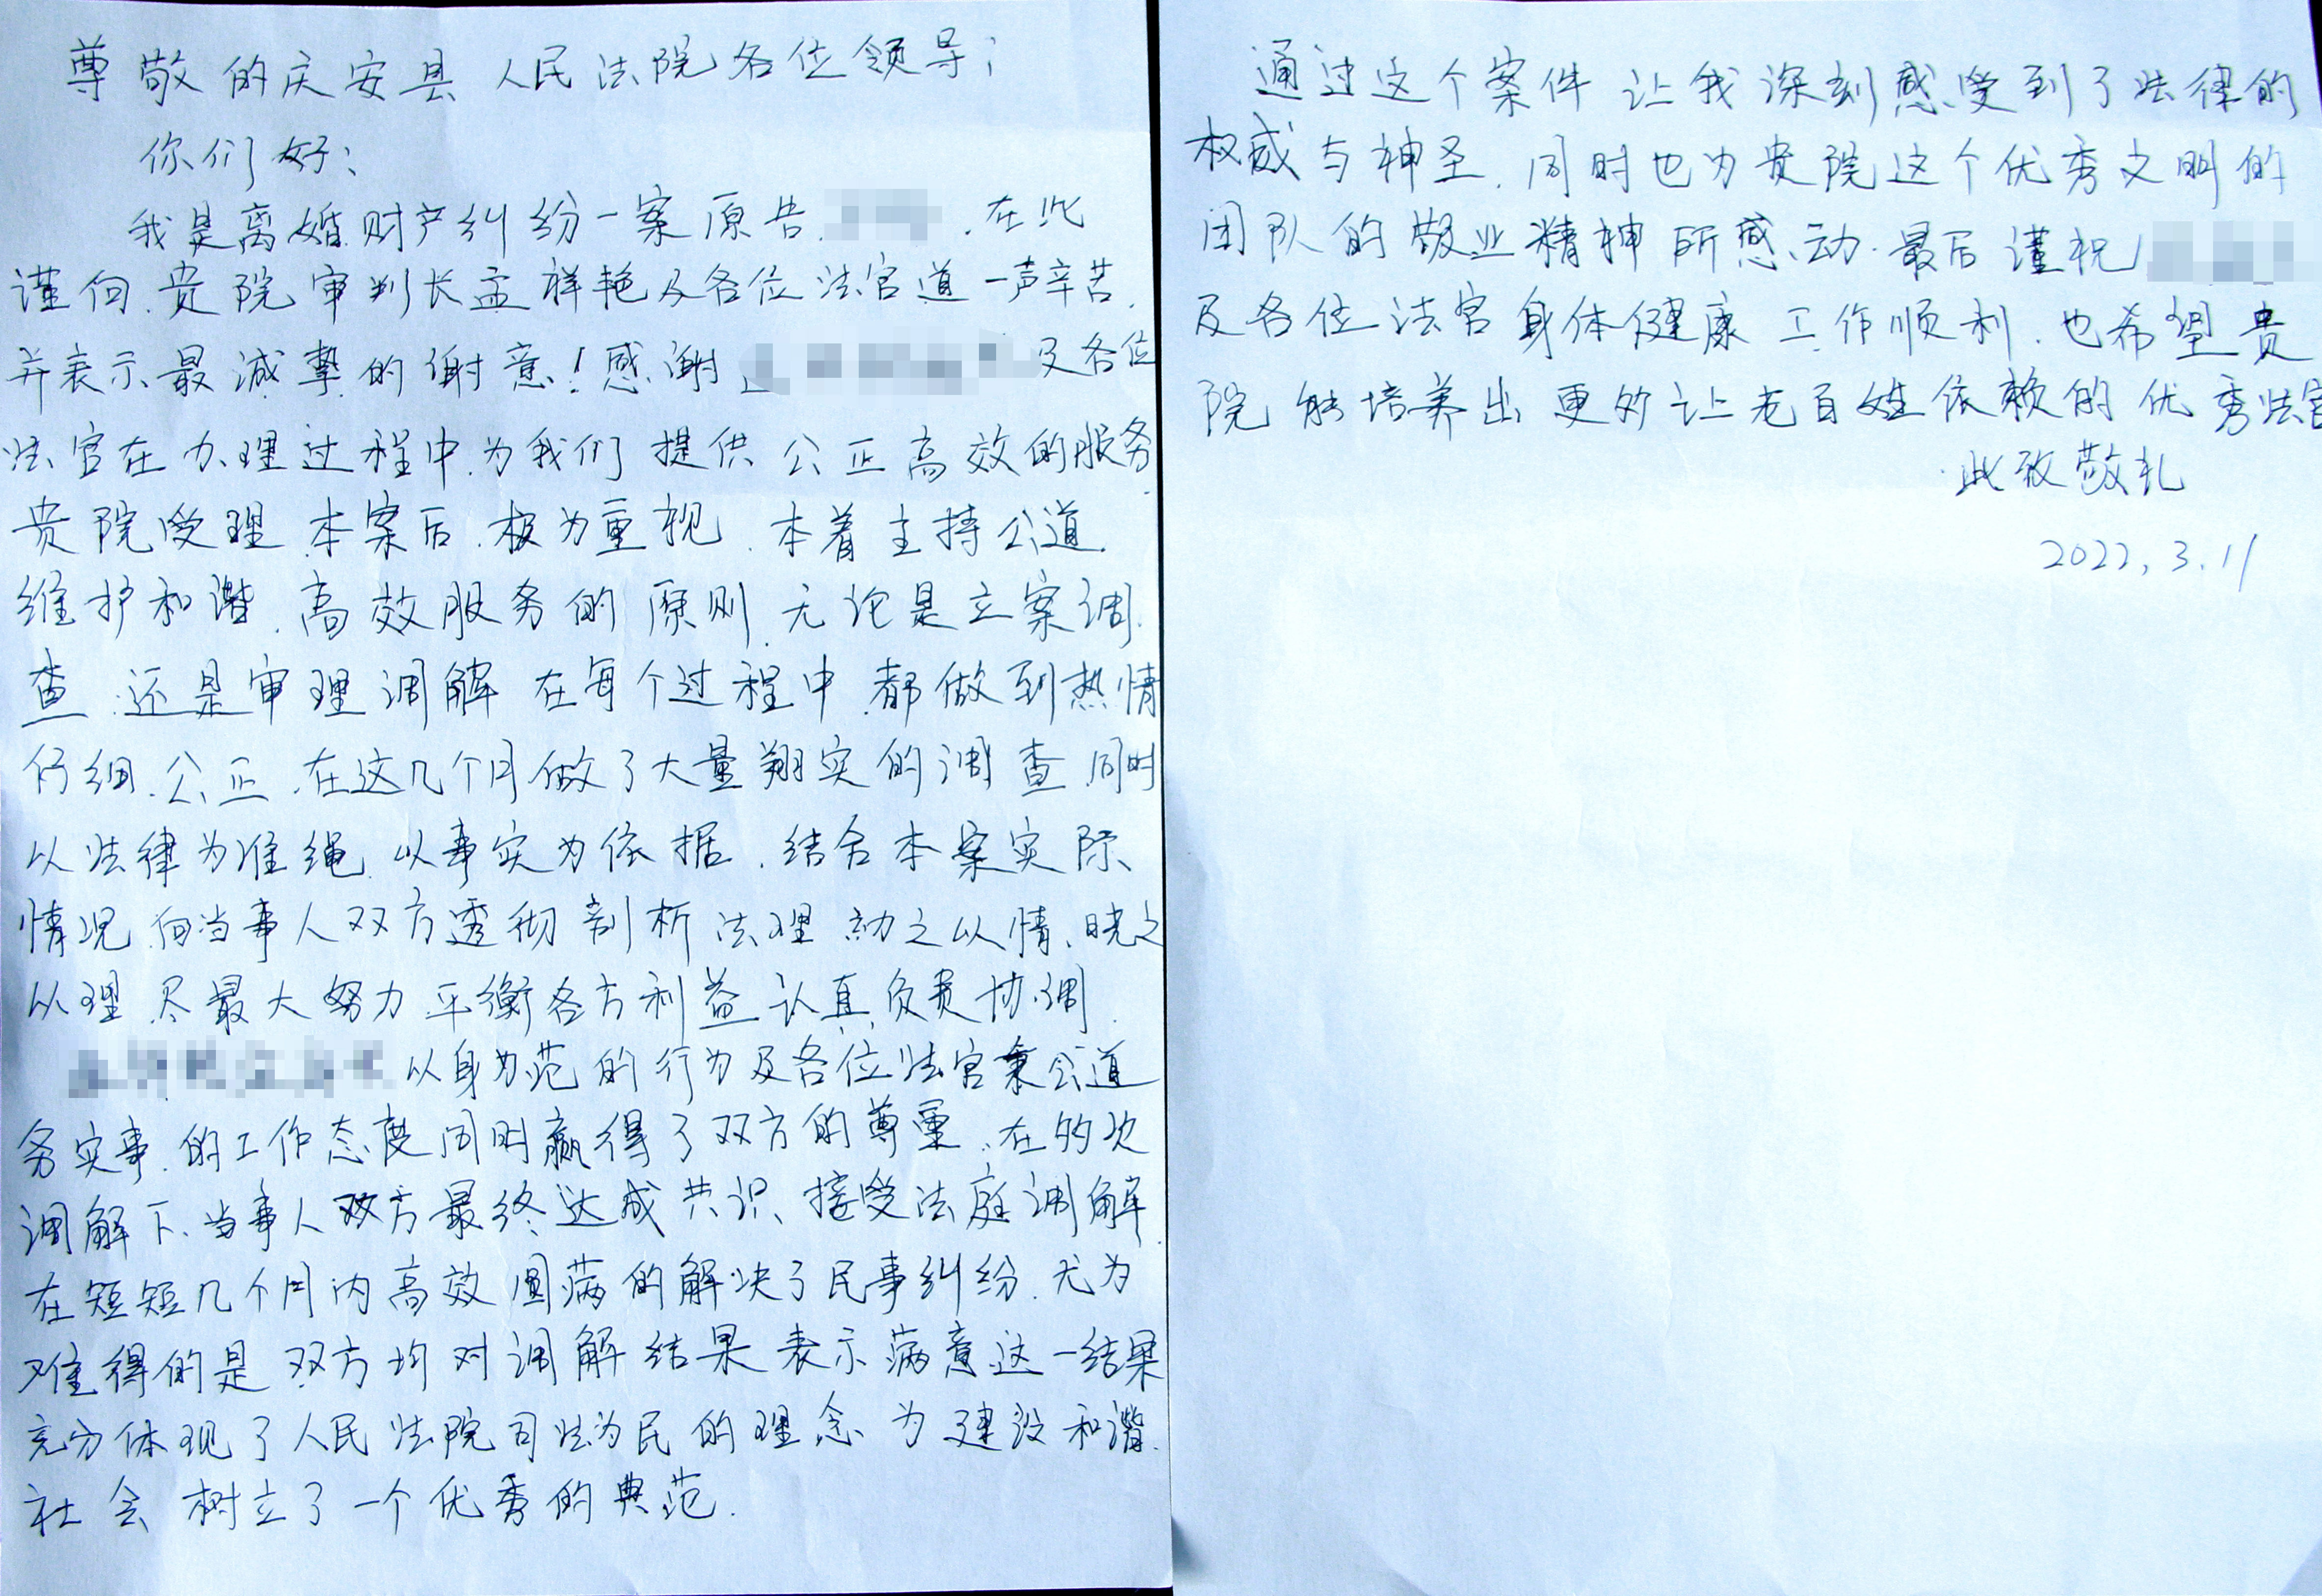 尊敬的庆安县人民法院各位领导；
你们好：
我是离婚财产纠纷一案原告，在此
谨向贵院审判长孟祥艳及各位法官道一声辛苦，
并表示最诚挚的谢意！感谢及各位
法官在办理过程中，为我们提供公正高效的服务
贵院受理本案后，极为重视，本着主持公道
维护和谐，高效服务的原则，无论是立案调
查，还是审理调解在每个过程中都做到热情
仔细，公正，在这几个月做了大量翔实的调查，同时
以法律为准绳，以事实为依据，结合本案实际
情况，向当事人双方透彻剖析法理动之以情、晓之
以理，尽最大努力平衡各方利益认真负责协调
以身为范的行为及各位法官秉公道
务实事的工作态度同时赢得了双方的尊重，在的次
调解下、当事人双方最终达成共识、接受法庭调解
在短短几个月内高效圆满的解决了民事纠纷，尤为
难得的是双方均对调解结果表示满意这一结果
充分体现了人民法院司法为民的理念为建设和谐
社会树立了一个优秀的典范.
通过这个案件让我深刻感受到了法律的
权威与神圣，同时也为贵院这个优秀文明的
团队的敬业精神所感动.最后谨祝
及各位法官身体健康工作顺利，也希望贵
院能培养出更多让老百姓依赖的优秀法官
此致敬礼
2022,3.11